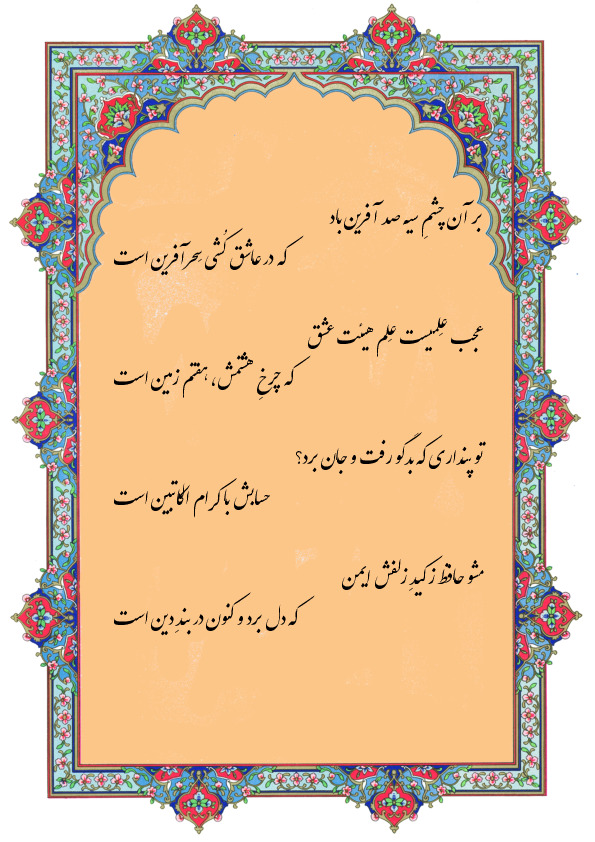 بر آن چشمِ سیه صد آفرین باد
که در عاشق کُشی سِحرآفرین است
عجب عِلمیست عِلم هیئت عشق
که چرخِ هشتمش، هفتم زمین است
تو پنداری که بدگو رفت و جان برد؟
حسابش با کرام الکاتبین است
مشو حافظ ز کیدِ زلفش ایمن
که دل برد و کنون در بندِ دین است